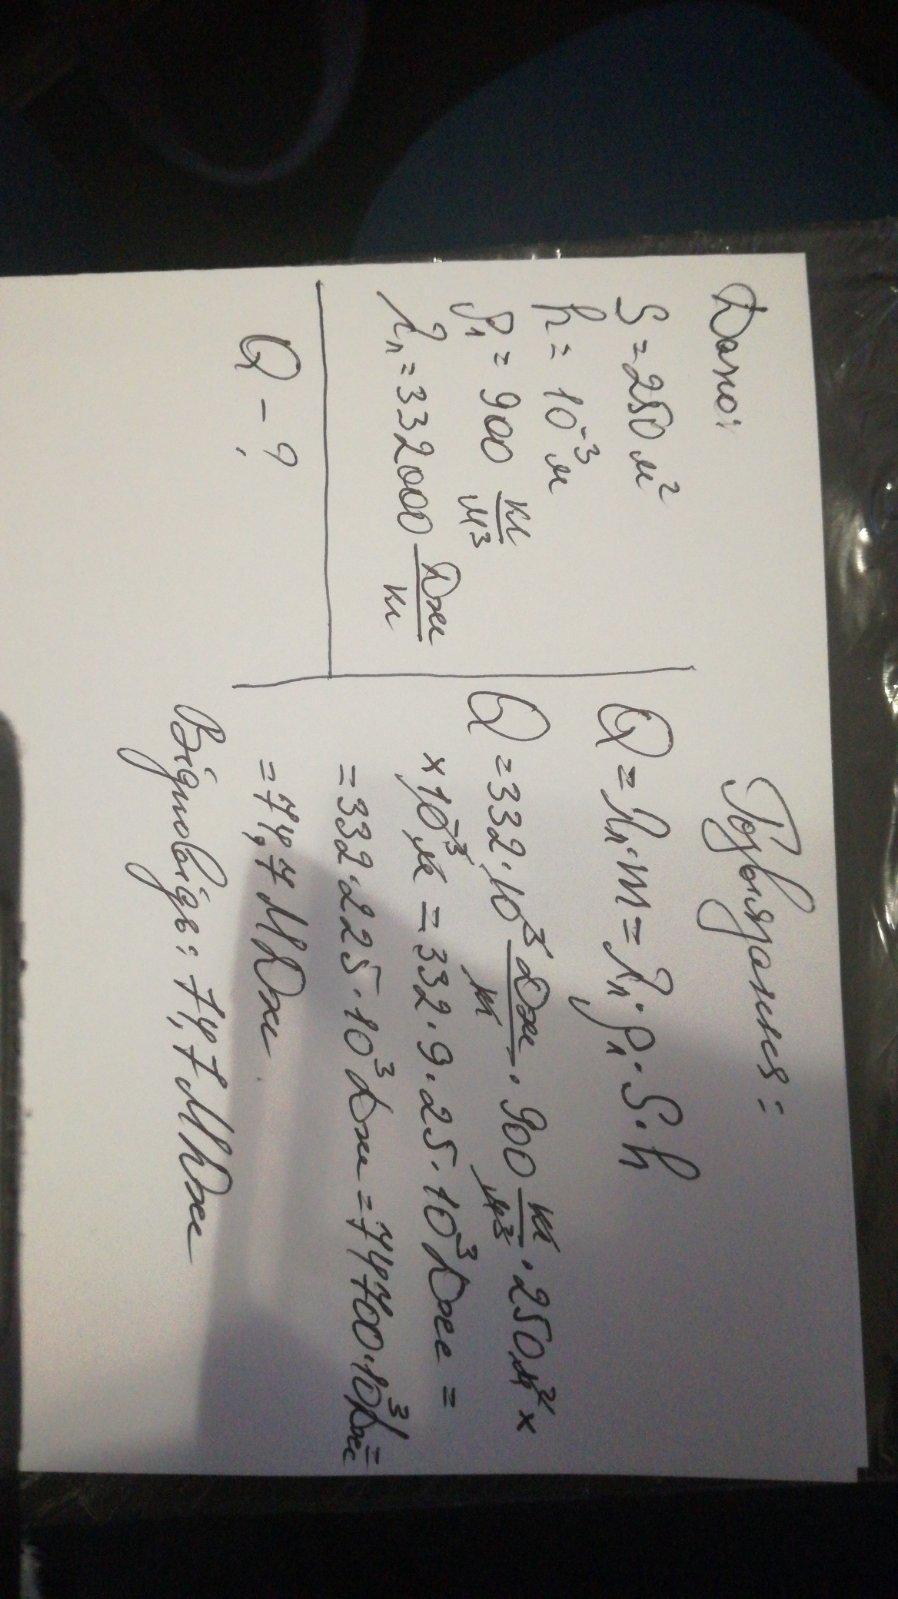 Дано:
S = 250 м²
h = 10⁻³ м
ρл = 900 кг/м³
λл = 332000 Дж/кг
Q - ?
Розв'язання:
Q = λл · m = λл · ρл · S · h
Q = 332 · 10³ Дж/кг · 900 кг/м³ · 250 м² ×
× 10⁻³ м = 332 · 9 · 25 · 10³ Дж =
= 332 · 225 · 10³ Дж = 74700 · 10³ Дж =
= 74,7 МДж
Відповідь: 74,7 МДж